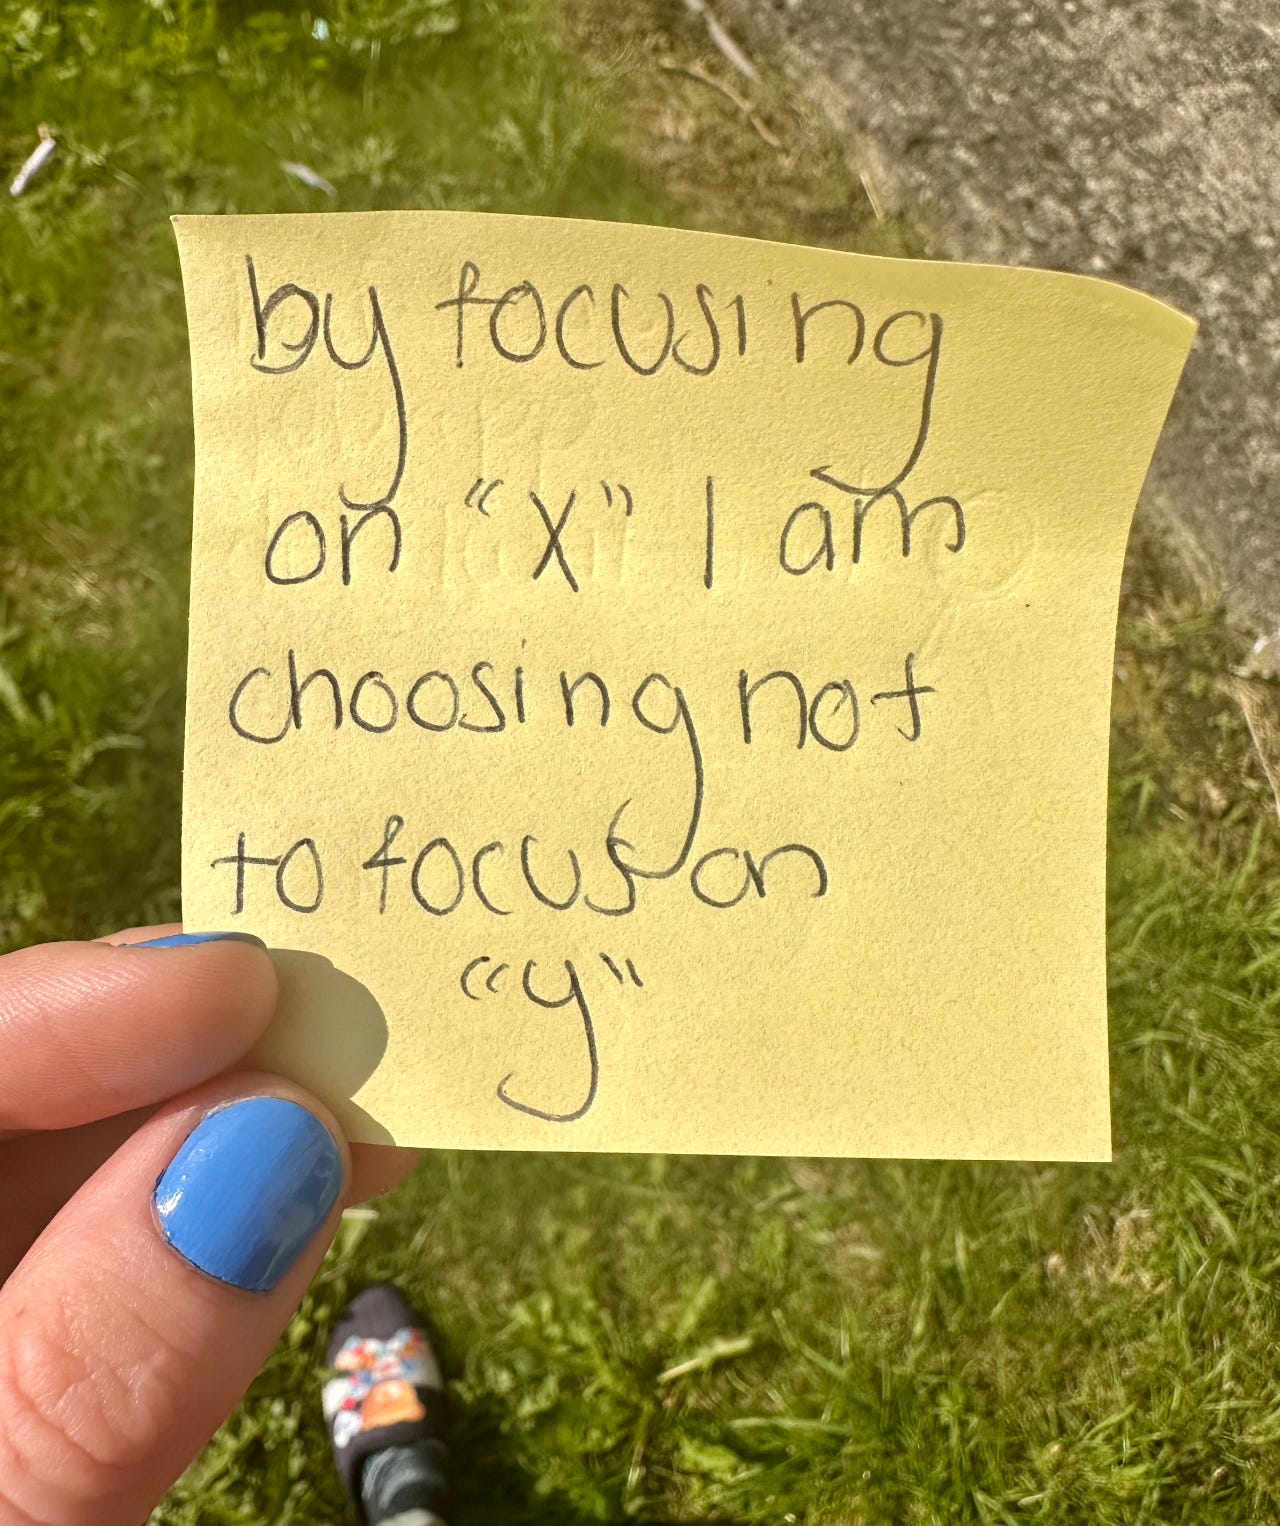 by focusing
on "X" I am
choosing not
to focus on
"y"